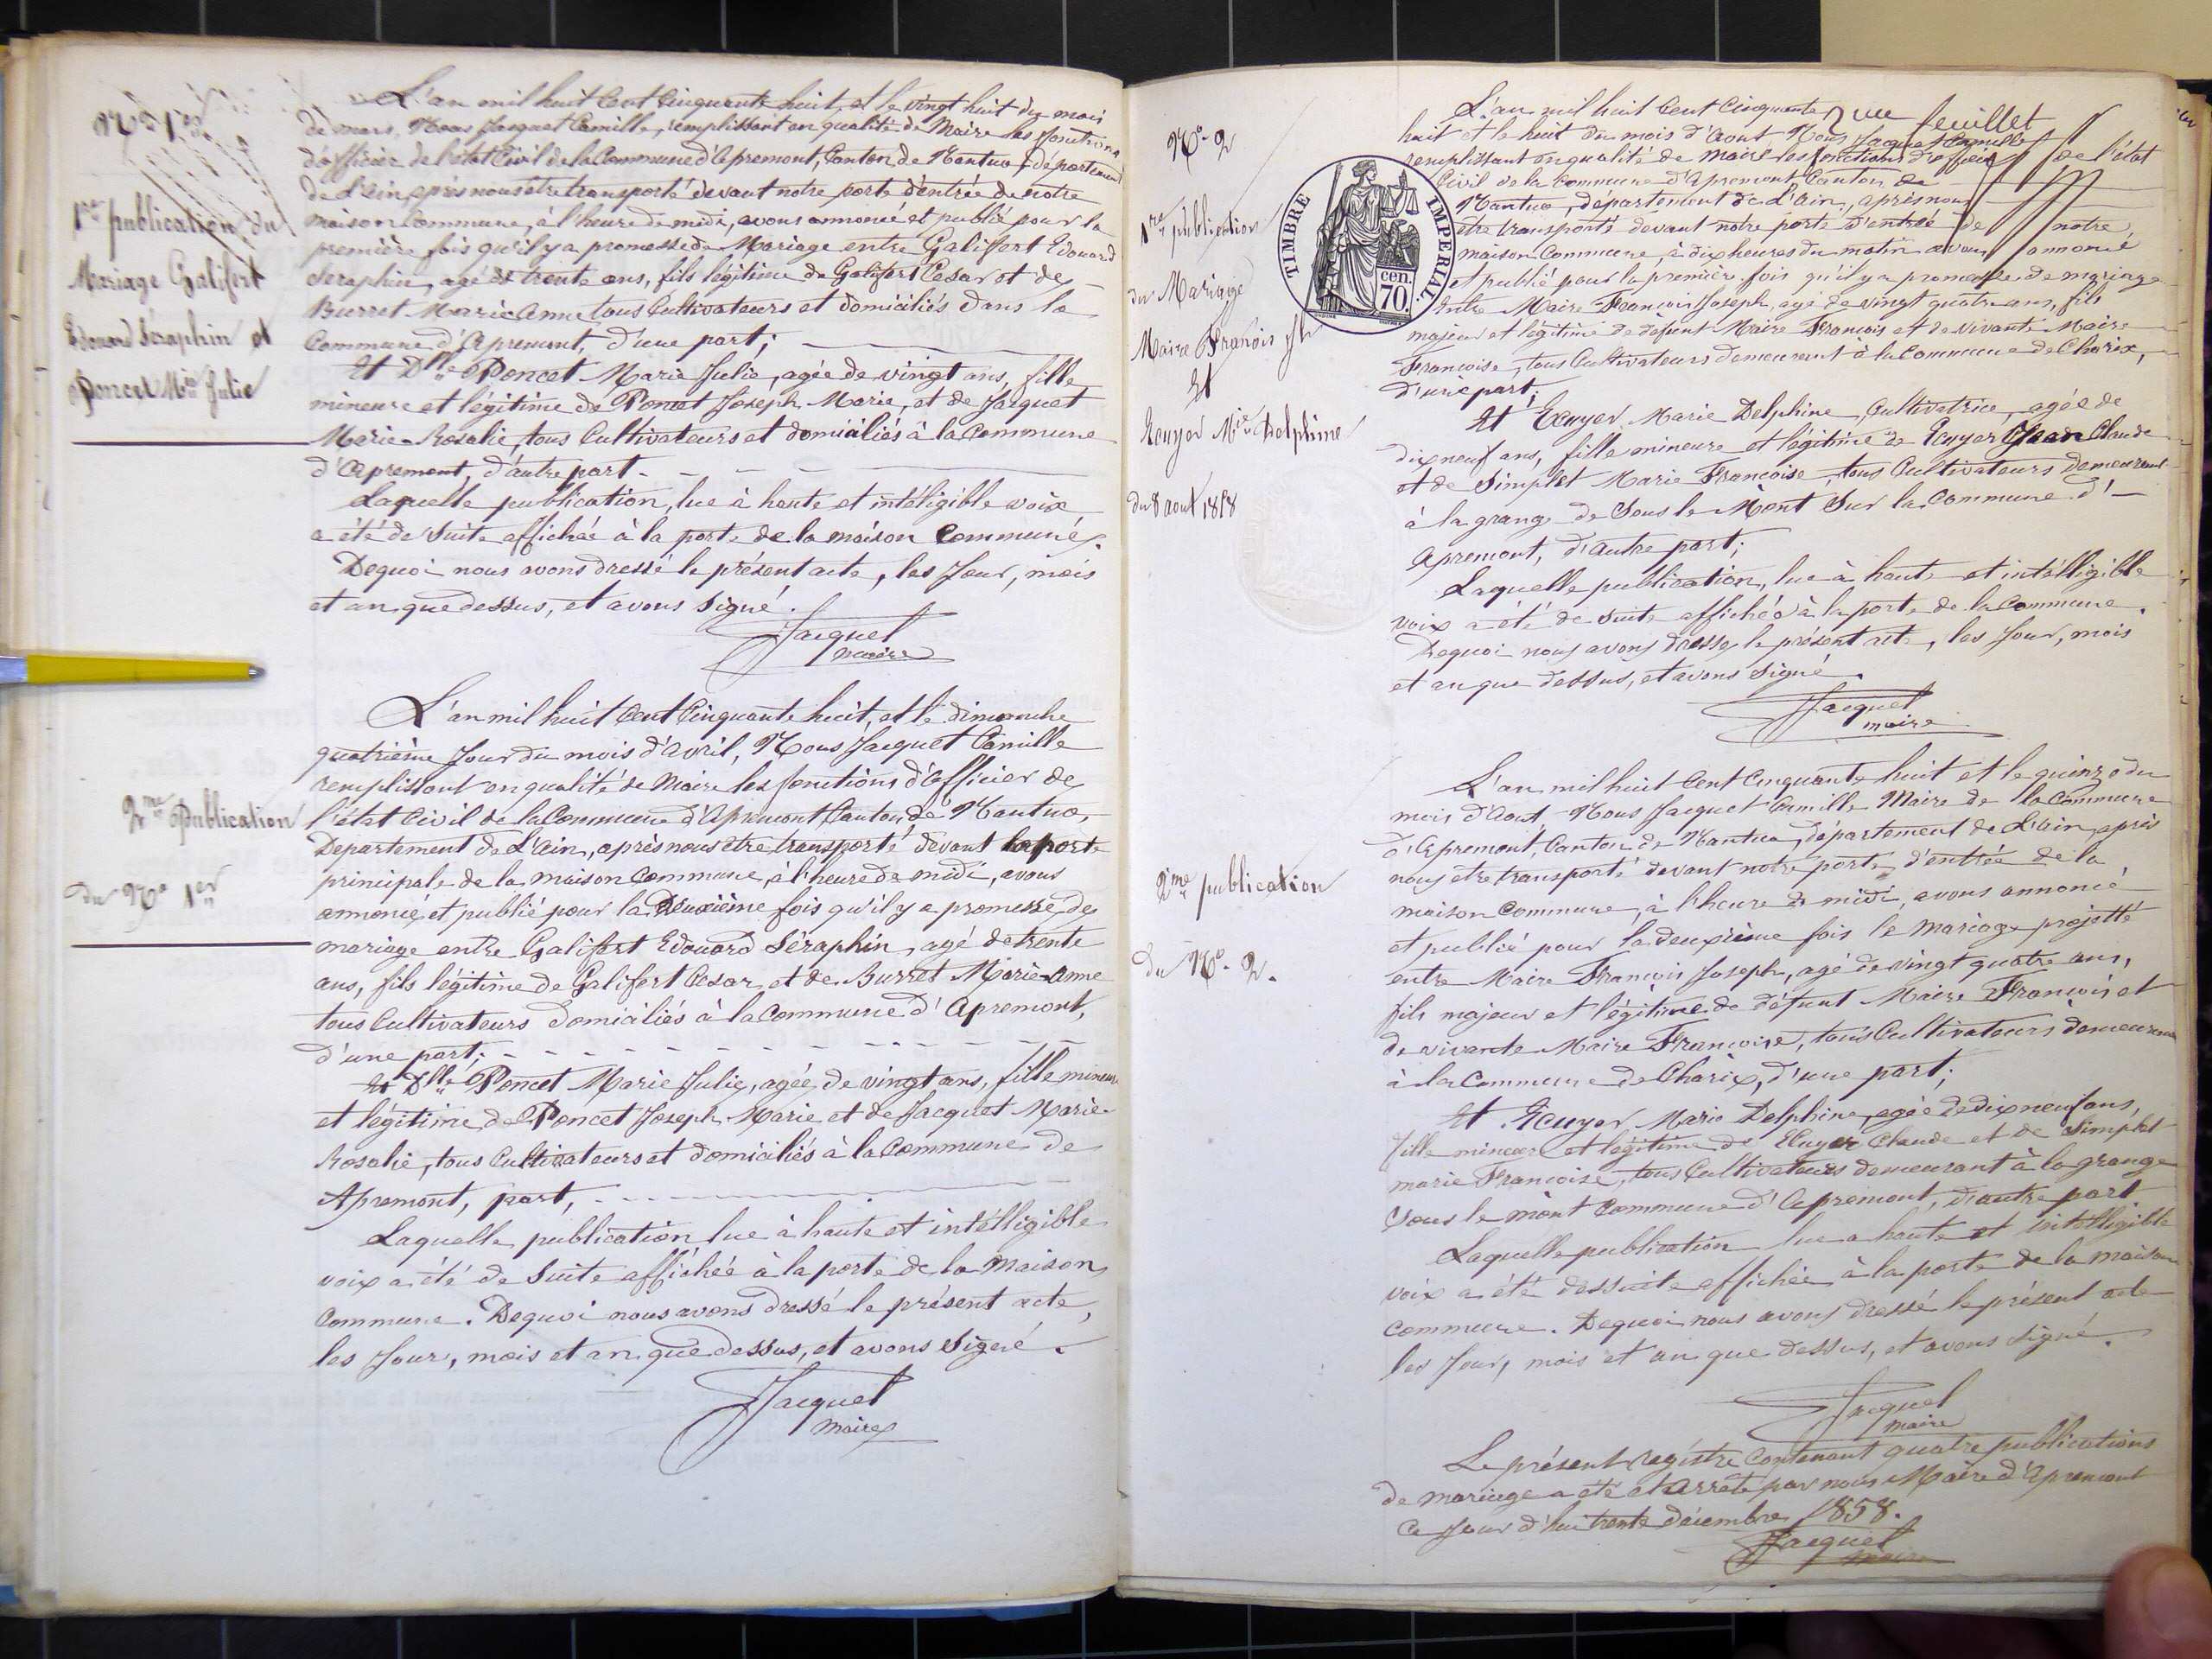 No 1er
1re publication du
Mariage Galifert
Edouard Séraphin et
Poncet Mie Julie
L'an mil huit Cent Cinquante huit, et le vingt huit du mois
de mars, Nous Jacquet Camille, remplissant en qualité de Maire les fonctions
d'officier de l'état Civil de la Commune d'Apremont, Canton de Nantua, département
de L'ain, après nous être transporté devant nôtre porte d'entrée de notre
maison Commune, à l'heure de midi, avons annoncé et publié pour la
première fois qu'il y a promesse de Mariage entre Galifert Edouard
Seraphin, agé de trente ans, fils légitime de Galifert Cesar et de
Burret Marie Anne tous Cultivateurs et domiciliés dans la
Commune d'Apremont, d'une part;
Et Dlle Poncet Marie Julie, agée de vingt ans, fille
mineure et légitime de Poncet Joseph Marie, et de Jacquet
Marie-Rosalie, tous Cultivateurs et domiciliés à la Commune
d'Apremont, d'autre part
Laquelle publication, lue à haute et intéligible voix
a été de suite affichée à la porte de la maison Commune.
Dequoi nous avons dressé le présent acte, les Jour, mois
et an que dessus, et avons signé.
Jacquet
maire
2me Publication
du No 1er
L'an mil huit Cent Cinquante huit, et le dimanche
quatrième Jour du mois d'avril, Nous Jacquet Camille
remplissant en qualité de Maire les fonctions d'Officier de
l'état Civil de la Commune d'Apremont, Canton de Nantua,
Departement de L'ain, après nous être transporté devant la porte
principale de la maison Commune, à l'heure de midi, avons
annoncé et publié pour la Deuxième fois qu'il y a promesse de
mariage entre Galifert Edouard Séraphin, agé de trente
ans, fils légitime de Galifert Cesar et de Burret Marie-Anne
tous Cultivateurs domiciliés à la Commune d'Apremont,
d'une part;
Et Dlle Poncet Marie Julie, agée de vingt ans, fille mineure
et légitime de Poncet Joseph Marie et de Jacquet Marie-
Rosalie, tous Cultivateurs et domiciliés à la Commune de
Apremont, part,
Laquelle publication lue à haute et intélligible
voix a été de suite affichée à la porte de la Maison
Commune. Dequoi nous avons dressé le présent acte,
les Jour, mois et an que dessus, et avons signé.
Jacquet
maire
No 2
1re publication
du Mariage
Maire François Jh
Et
Ecuyer Mie Delphine
du 8 aout 1858
TIMBRE IMPERIAL
cen.
70.
feuillet
L'an mil huit Cent Cinquante
huit et le huit du mois d'aout Nous Jacquet Camille
remplissant en qualité de Maire les fonctions d'officier de l'état
Civil de la Commune d'Apremont Canton de
Nantua, departement de L'ain, après nous
être transporté devant notre porte d'entrée de notre
maison Commune, à dix heures du matin avons annoncé
et publié pour la première fois qu'il y a promesse de mariage
Entre Maire François Joseph, agé de vingt quatre ans, fils
majeur et légitime de défunt Maire François et de vivante Maire
Françoise, tous Cultivateurs demeurant à la Commune de Charix,
d'une part;
Et Ecuyer Marie Delphine, Cultivatrice, agée de
dix neuf ans, fille mineure et légitime de Ecuyer Jean Claude
et de Simplet Marie Françoise, tous Cultivateurs demeurant
à la grange de Sous le Mont sur la Commune d'
Apremont, d'autre part;
Laquelle publication, lue à haute et intélligible
voix a été de suite affichée à la porte de la Commune.
Dequoi nous avons dressé le présent acte, les Jour, mois
et an que dessus, et avons signé.
Jacquet
maire
2me publication
du No. 2.
L'an mil huit Cent Cinquante huit et le quinze du
mois d'Aout Nous Jacquet Camille Maire de la Commune
d'Apremont, Canton de Nantua, département de L'ain, après
nous être transporté devant notre porte d'entrée de la
maison Commune, à l'heure de midi, avons annoncé
et publié pour la deuxième fois le Mariage projetté
entre Maire François Joseph, agé de vingt quatre ans,
fils majeur et légitime de défunt Maire François et
de vivante Maire Françoise, tous Cultivateurs demeurant
à la Commune de Charix, d'une part;
Et Ecuyer Marie Delphine, agée de dix neuf ans,
fille mineure et légitime de Ecuyer Claude et de Simplet
marie Françoise, tous Cultivateurs demeurant à la grange
Sous le mont Commune d'Apremont, d'autre part
Laquelle publication lue a haute et intélligible
voix a été dessuite affichée à la porte de la maison
Commune. Dequoi nous avons dressé le présent acte
les Jour, mois et an que dessus, et avons signé.
Jacquet
maire
Le présent régistre Contenant quatre publications
de mariage a été et arrêté par nous Maire d'Apremont
Ce Jour d'hui trente décembre 1858.
Jacquet
maire